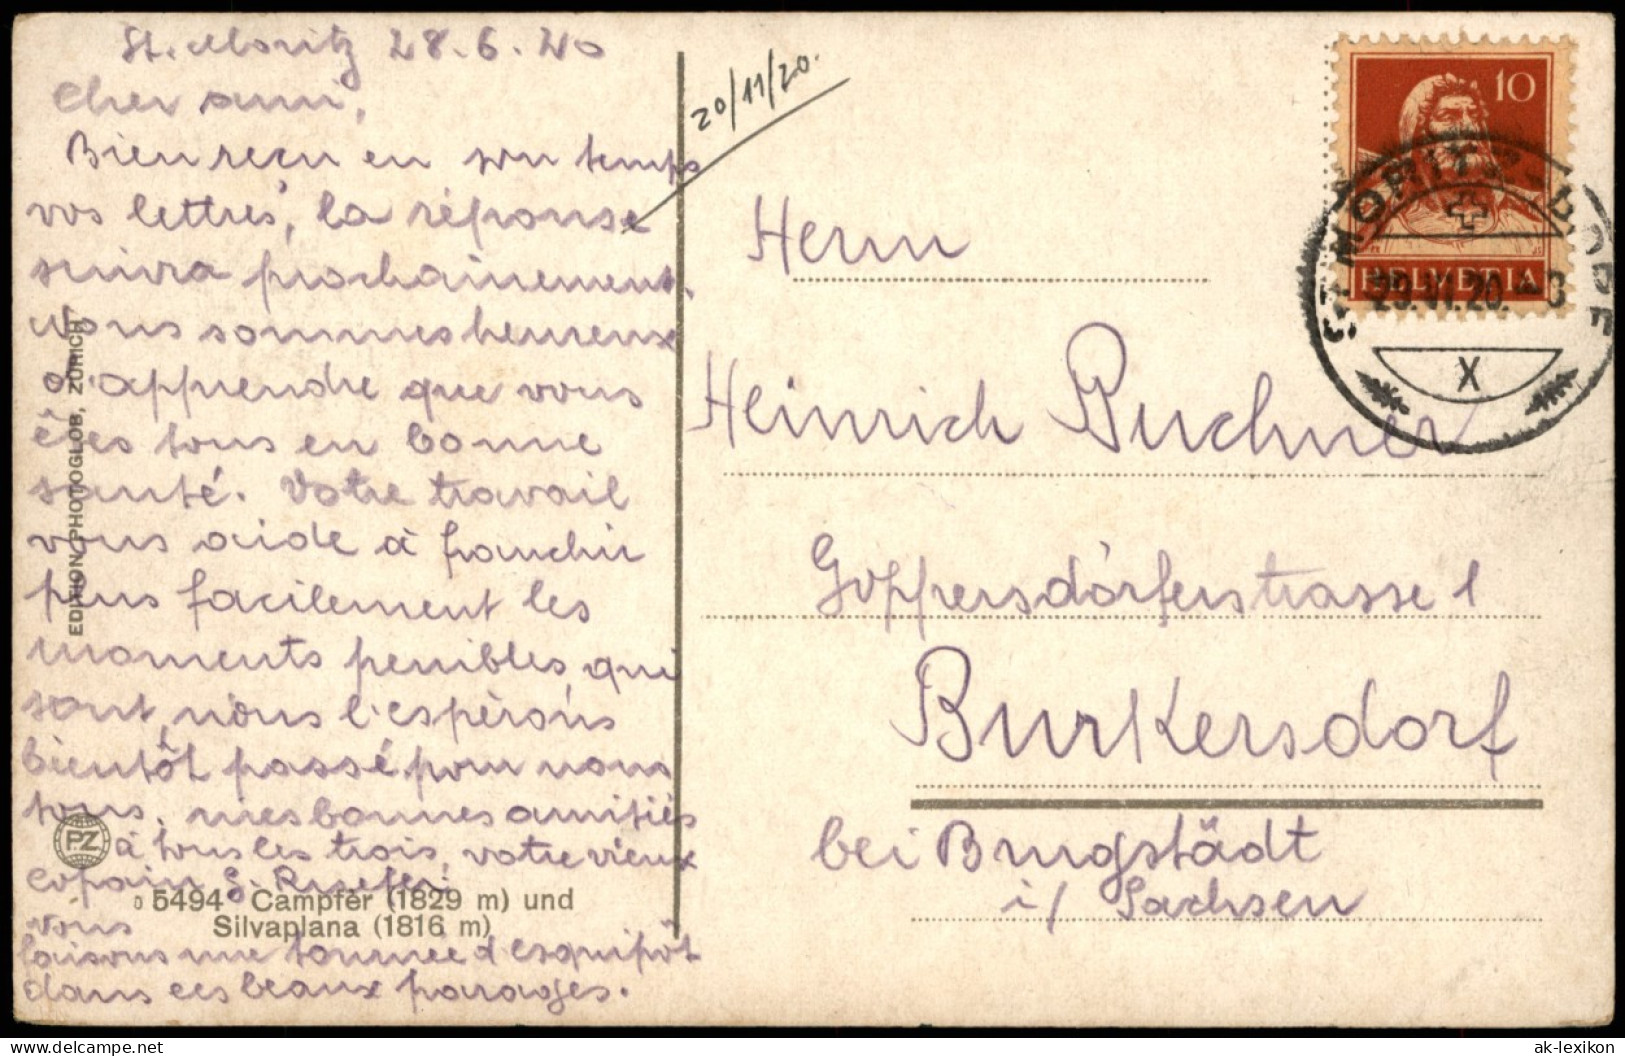 St. Moritz 28.6.20
Cher ami,
Bien reçu en son temps
vos lettres, la réponse
suivra prochainement.
Nous sommes heureux
d'apprendre que vous
êtes tous en bonne
santé. Votre travail
vous aide à franchir
plus facilement les
moments penibles, qui
sont, nous l'espèrons
bientôt passé pour nous
tous. mes bonnes amitiés
à tous les trois, votre vieux
copain
vous
faisons une tournée d
dans ces beaux parages.
EDITION PHOTOGLOB, ZÜRICH
PZ
5494 Campfèr (1829 m) und
Silvaplana (1816 m)
20/11/20.
10
HELVETIA
ST. MORITZ-DORF
29.VI.20.
X
Herrn
Heinrich Puchner
Goppersdörferstrasse 1
Burkersdorf
bei Burgstädt
i/ Sachsen
ak-lexikon